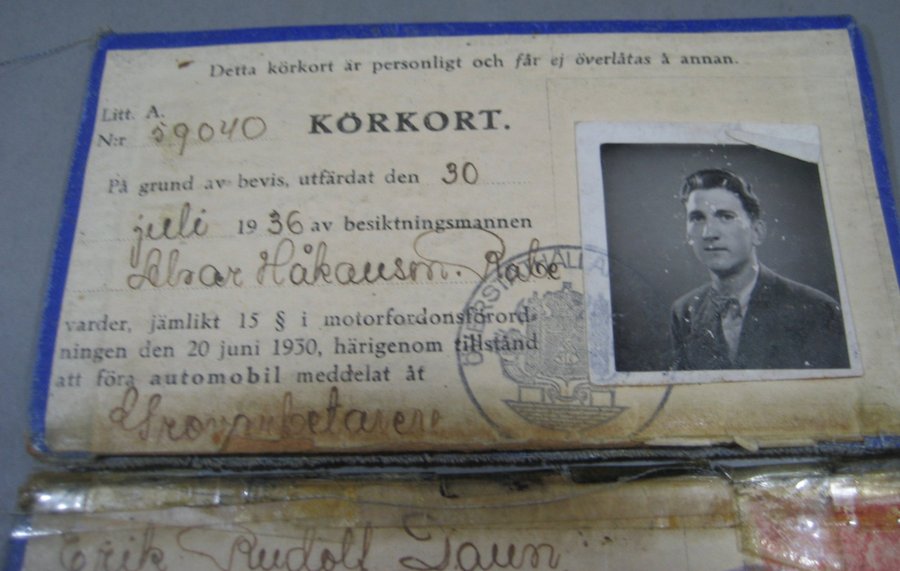 Detta körkort är personligt och får ej överlåtas å annan.
Litt. A.
N:r 59040
KÖRKORT.
På grund av bevis, utfärdat den 30
juli 1936 av besiktningsmannen
Håkanson. Rabe
varder, jämlikt 15 § i motorfordonsförord-
ningen den 20 juni 1930, härigenom tillstånd
att föra automobil meddelat åt
Grovarbetaren
Erik Rudolf